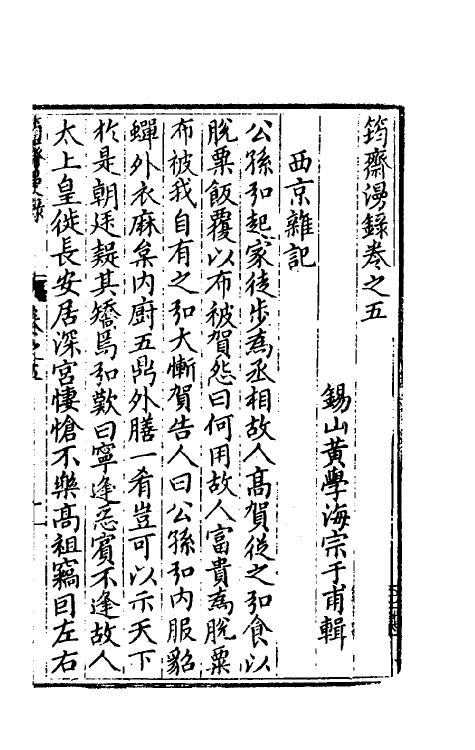 筠齋漫録卷之五
錫山黃學海宗于甫輯
西京雜記
公孫弘起家徒步為丞相故人高賀從之弘食以
脫粟飯覆以布被賀怨曰何用故人富貴為脫粟
布被我自有之弘大慚賀告人曰公孫弘内服貂
蟬外衣麻枲内廚五鼎外膳一肴豈可以示天下
於是朝廷疑其矯焉弘歎曰寧逢惡賓不逢故人
太上皇徙長安居深宮悽愴不樂高祖竊囙左右